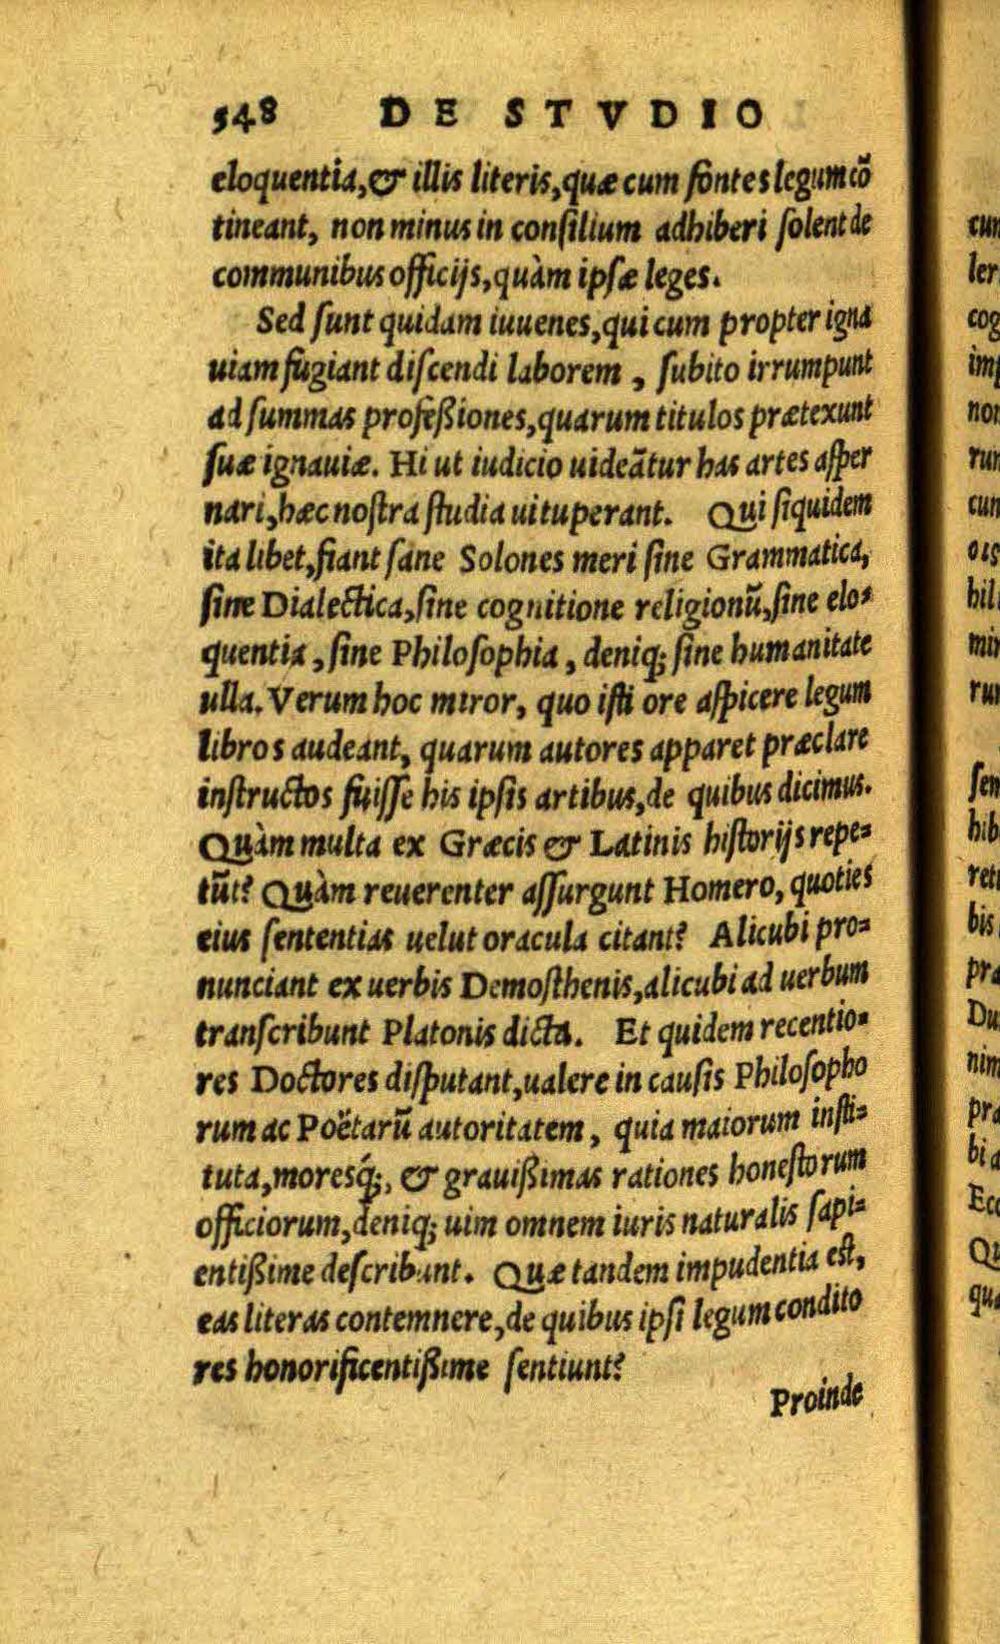 548 DE STVDIO
eloquentia,& illis literis,quæ cum fontes legum cõ
tineant, non minus in conſilium adhiberi ſolent de
communibus officijs,quàm ipſæ leges.
Sed ſunt quidam iuuenes,qui cum propter igna
uiam fugiant diſcendi laborem , ſubito irrumpunt
ad ſummas profeßiones,quarum titulos prætexunt
ſuæ ignauiæ. Hi ut iudicio uideãtur has artes aſper
nari,hæc noſtra ſtudia uituperant. Qui ſiquidem
ita libet,fiant ſane Solones meri ſine Grammatica,
ſine Dialectica,ſine cognitione religionũ,ſine elo⸗
quentia , ſine Philoſophia , deniq; ſine humanitate
ulla. Verum hoc miror, quo iſti ore aſpicere legum
libros audeant, quarum autores apparet præclare
inſtructos fuiſſe his ipſis artibus,de quibus dicimus.
Quàm multa ex Græcis & Latinis hiſtorijs repe⸗
tũt? Quàm reuerenter aſſurgunt Homero, quoties
eius ſententias uelut oracula citant? Alicubi pro⸗
nunciant ex uerbis Demoſthenis,alicubi ad uerbum
tranſcribunt Platonis dicta. Et quidem recentio⸗
res Doctores diſputant,ualere in cauſis Philoſopho
rum ac Poëtarũ autoritatem , quia maiorum inſti⸗
tuta,moresq́;, & grauißimas rationes honeſtorum
officiorum,deniq; uim omnem iuris naturalis ſapi⸗
entißime deſcribunt. Quæ tandem impudentia eſt,
eas literas contemnere,de quibus ipſi legum condito
res honorificentißime ſentiunt?
Proinde
cum
ler
cog
imp
non
rum
cun
ois
bili
min
rum
ſen
hib
reti
bis
pra
Du
nim
pra
bi a
Ecc
Qu
qua